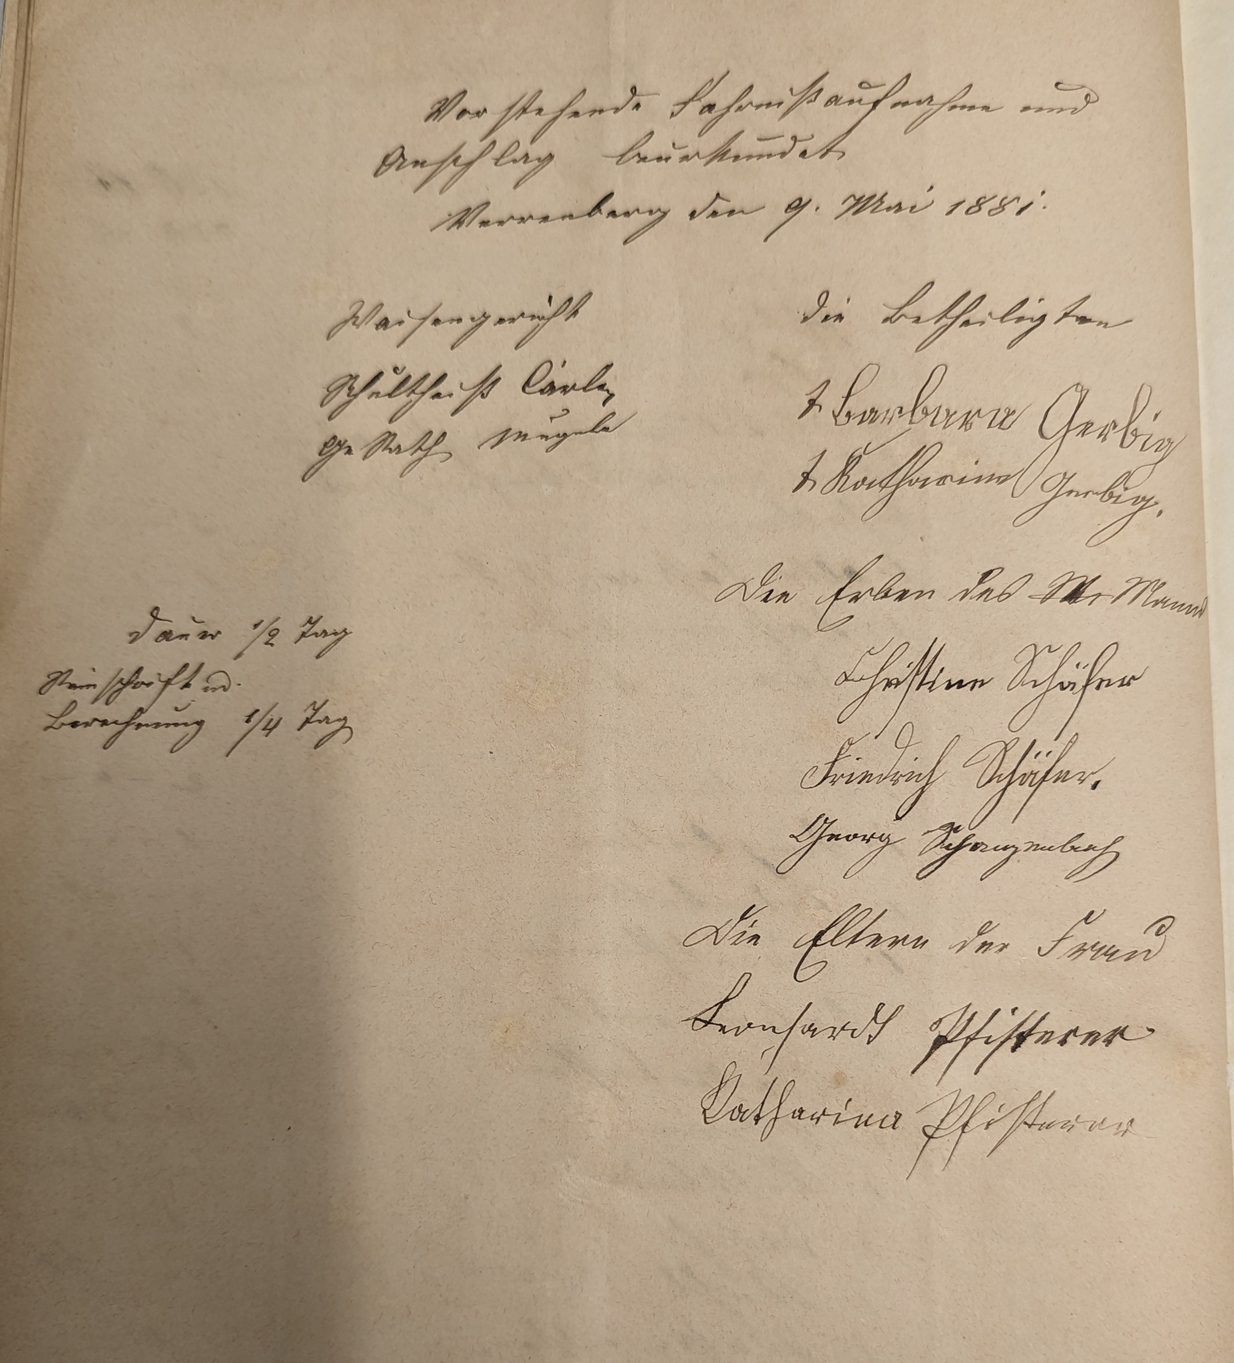 Vorstehende Fahrnißaufnahme und
Anschlag beurkundet
Verrenberg den 9. Mai 1881.
Waisengericht
Schultheiß Carle
GeRath
die Betheiligten
† Barbara Gerbig
† Katharine Gerbig.
Die Erben des Mannes
Christine Schäfer
Friedrich Schäfer.
Georg Schanzenbach
Dauer 1/2 Tag
Reinschrift u.
Berechnung 1/4 Tag
Die Eltern der Frau
Leonhardt Pfisterer
Catharina Pfisterer